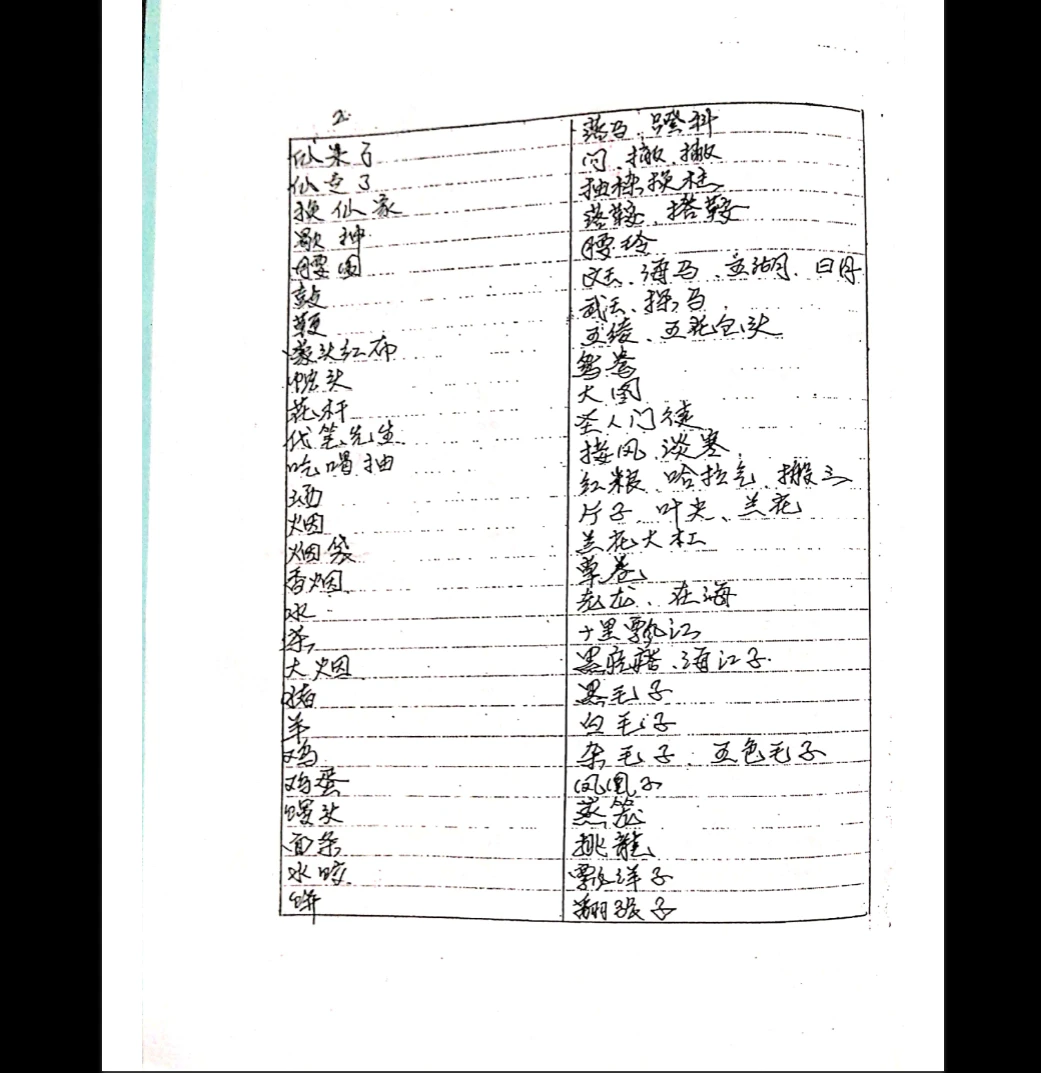 2.
仙来了 落马、蹬科
仙走了 问、撤、撤
换仙家 抽梁换柱
歇抻 落鞍、搭鞍
腰围 腰玲
鼓 文王、海马、五湖、日月
鞭 武王、探马
蒙头红布 五绫、五花包头
枕头 鸳鸯
花杆 大图
代笔先生 圣人门徒
吃喝抽 接风、淡寒
酒 红粮、哈拉气、搬三
烟 片子、叶尖、兰花
烟袋 兰花大杠
香烟 草卷
水 老龙、在海
茶 十里飘江
大烟 黑疙瘩、海江子
猪 黑毛子
羊 白毛子
鸡 杂毛子、五色毛子
鸡蛋 凤凰子
馒头 蒸笼
面条 挑龍
水咬 飘洋子
饼 翻张子